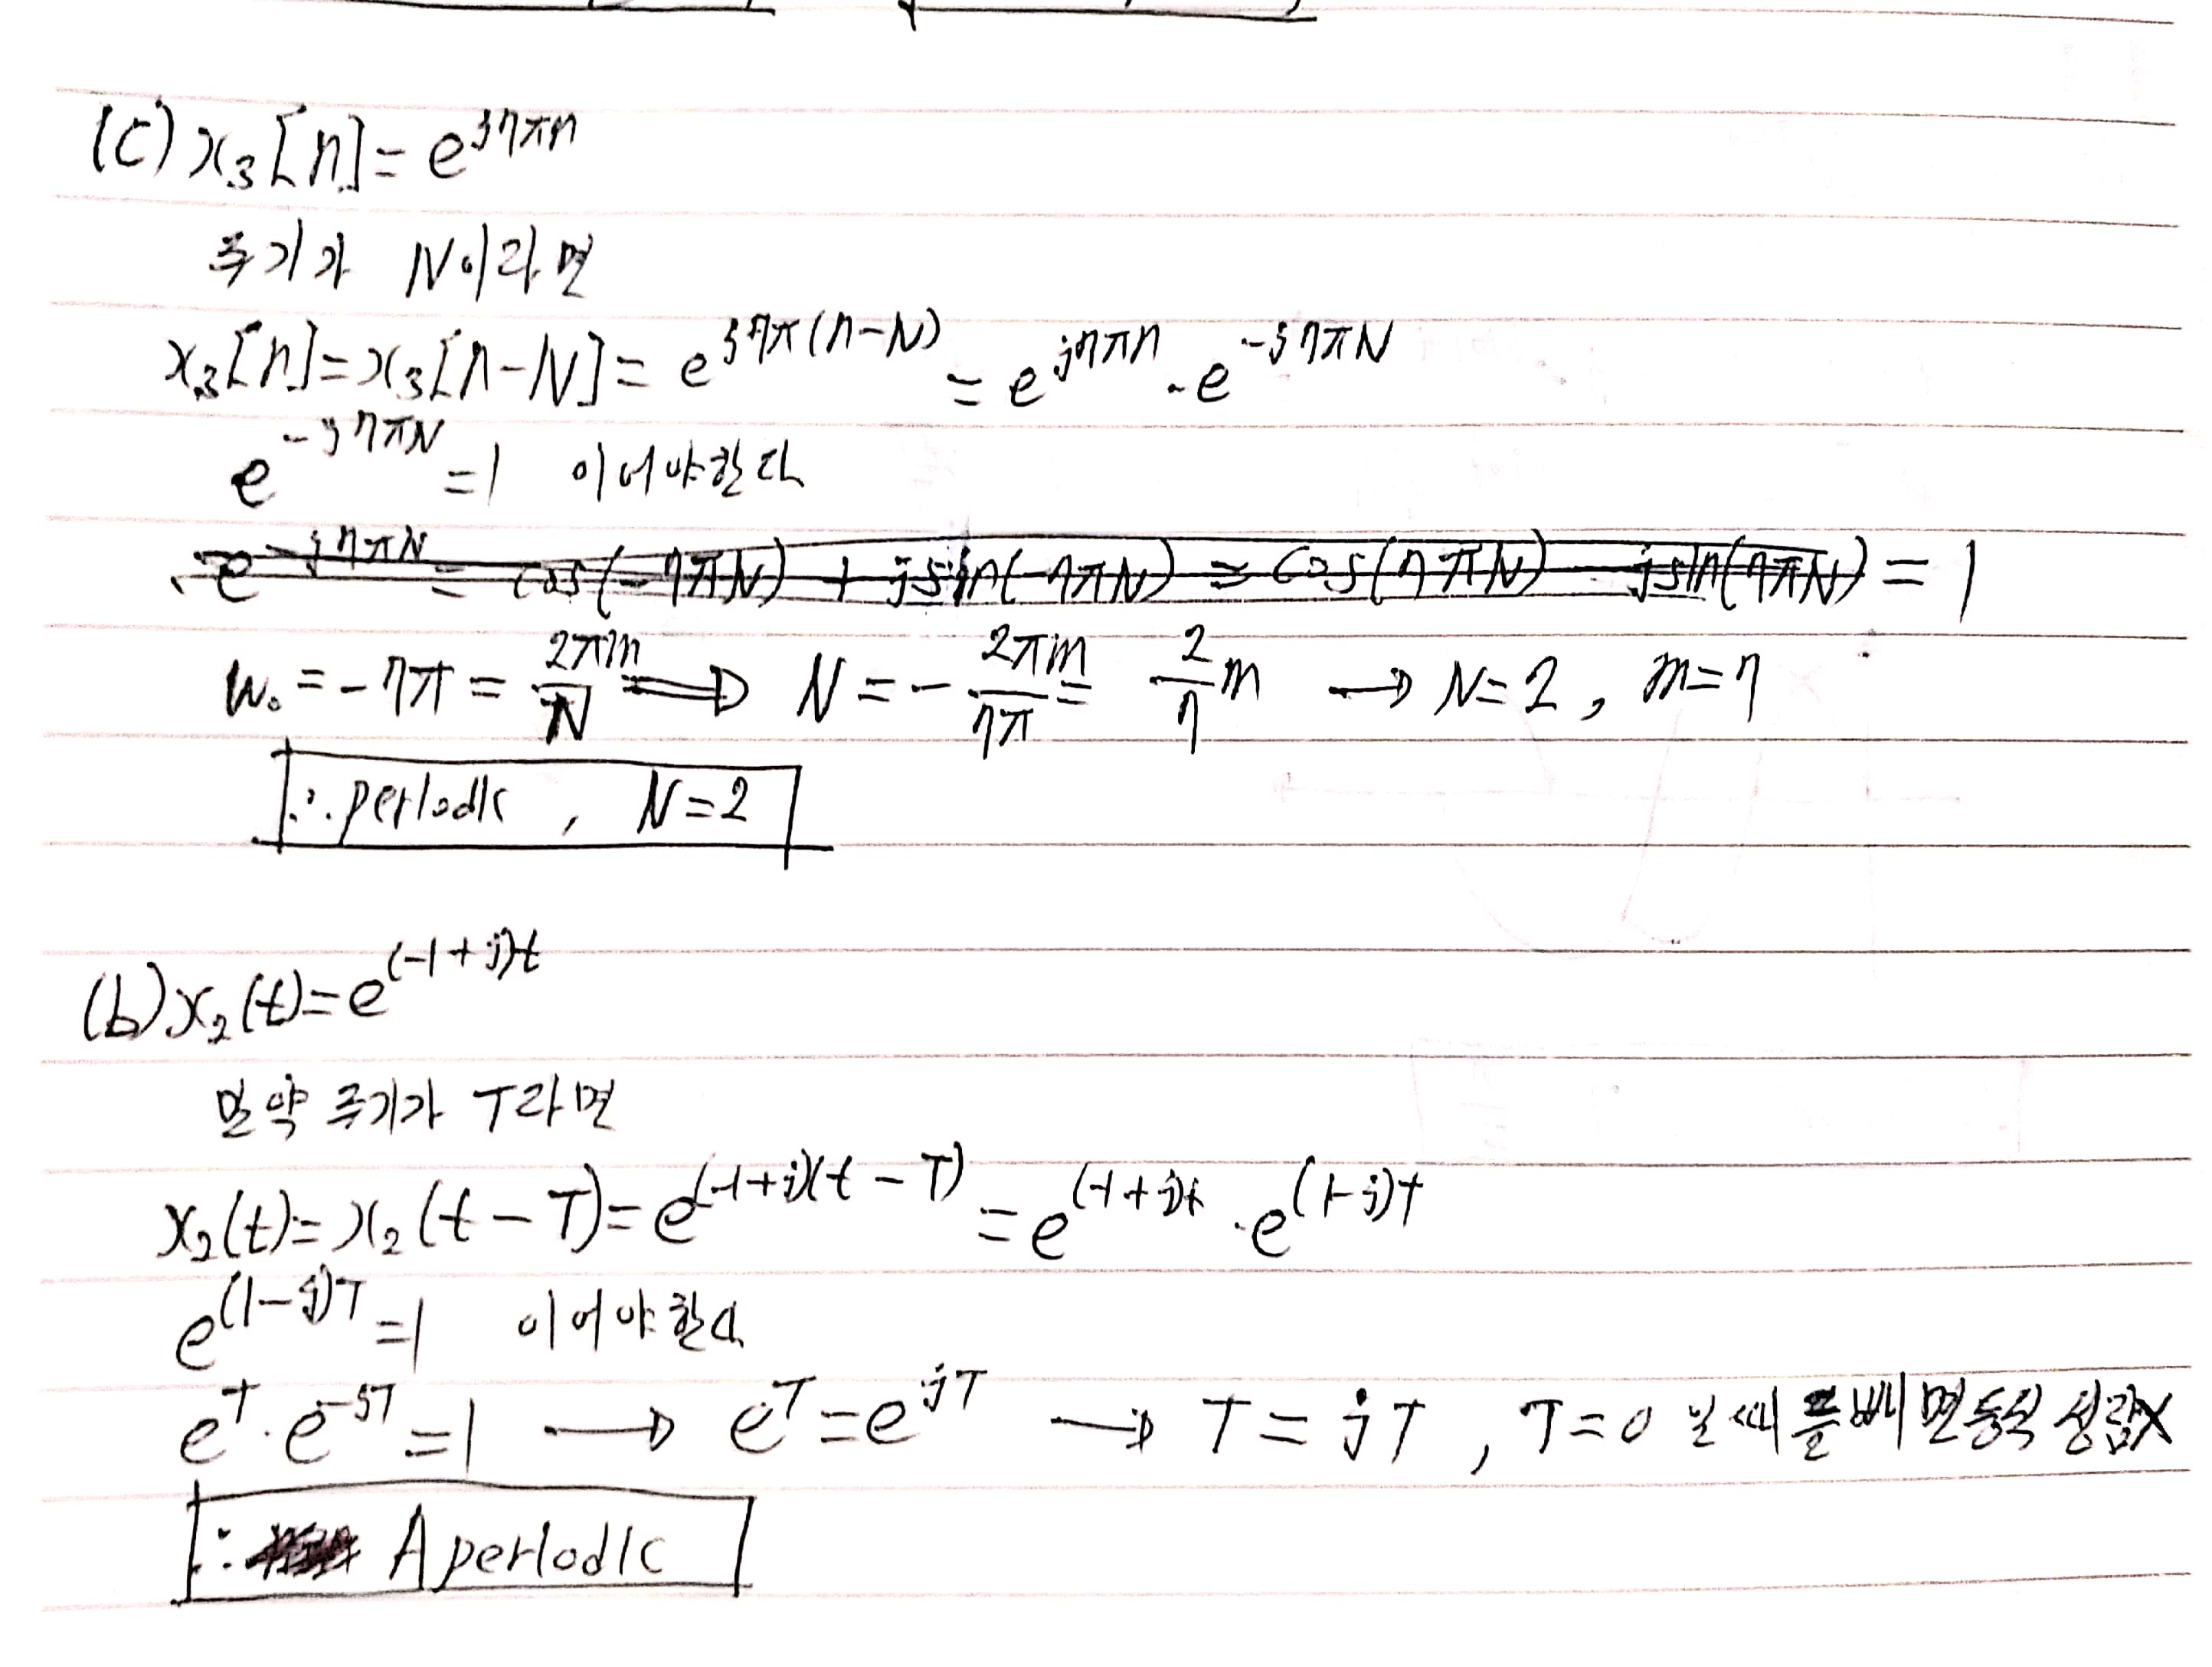 (c) x₃[n] = e^{j7πn}
주기가 N이라면
x₃[n] = x₃[n-N] = e^{j7π(n-N)} = e^{j7πn} · e^{-j7πN}
e^{-j7πN} = 1 이어야한다
e^{-j7πN} = cos(-7πN) + jsin(-7πN) = cos(7πN) - jsin(7πN) = 1
w₀ = -7π = 2πm/N ⟹ N = - 2πm/7π = 2/7 m → N=2, m=7
∴ periodic, N=2
(b) x₂(t) = e^{(-1+j)t}
만약 주기가 T라면
x₂(t) = x₂(t-T) = e^{(-1+j)(t-T)} = e^{(-1+j)t} · e^{(1-j)T}
e^{(1-j)T} = 1 이어야한다
e^T · e^{-jT} = 1 → e^T = e^{jT} → T = jT, T=0 일때를 빼면 등식 성립X
∴ Aperiodic